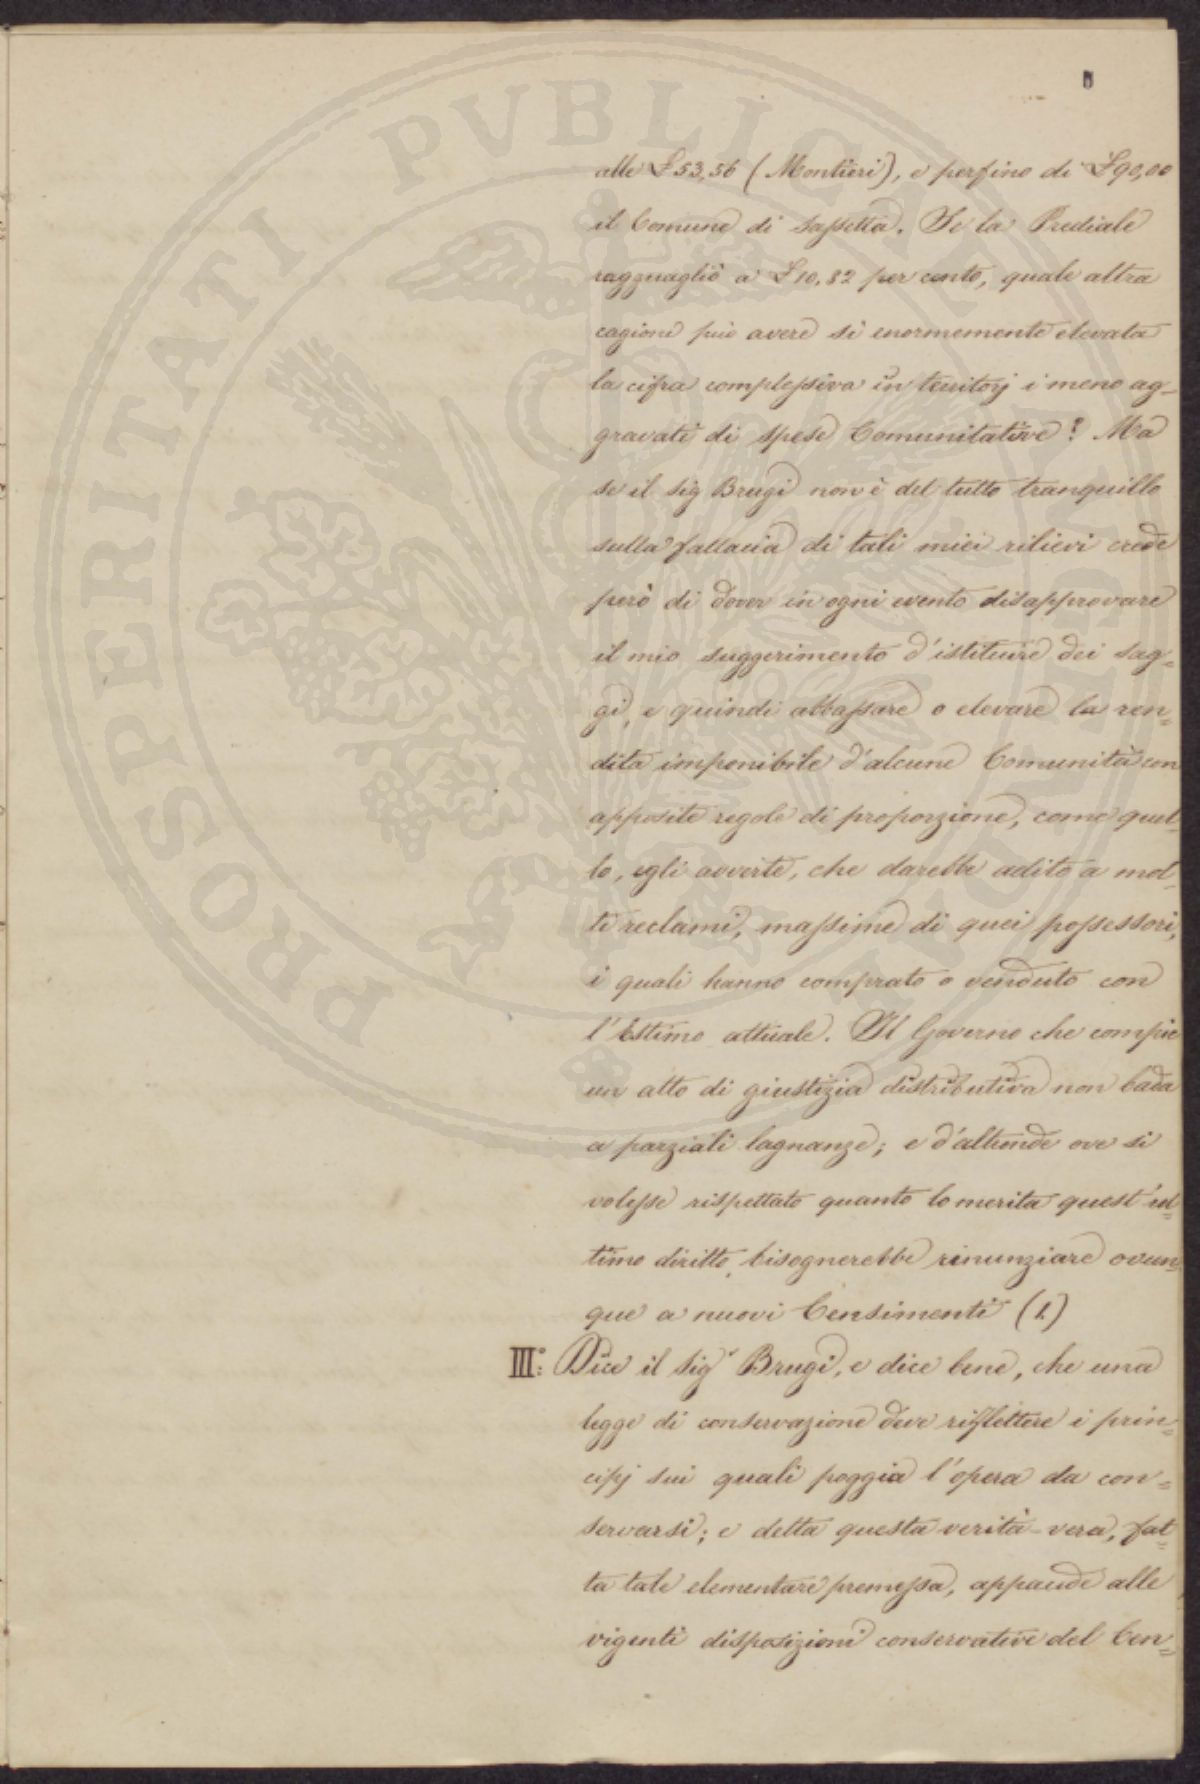 PROSPERITATI PVBLICAE AVGENDAE
alle £ 53,56 (Montieri), e perfino di £ 90,00
il Comune di Sassetta. Se la Prediale
ragguagliò a £ 10,82 per cento, quale altra
cagione può avere sì enormemente elevata
la cifra complessiva in territorj i meno ag-
gravati di spese Comunitative? Ma
se il Sig Brugi non è del tutto tranquillo
sulla fallacia di tali miei rilievi crede
però di dover in ogni evento disapprovare
il mio suggerimento d'istituire dei sag=
gi, e quindi abbassare o elevare la ren=
dita imponibile d'alcune Comunità con
apposite regole di proporzione, come quel=
lo, egli avverte, che darebbe adito a mol-
ti reclami, massime di quei possessori,
i quali hanno comprato o venduto con
l'Estimo attuale. Il Governo che compie
un atto di giustizia distributiva non bada
a parziali lagnanze; e d'altronde ove si
volesse rispettato quanto lo merita quest'ul=
timo diritto, bisognerebbe rinunziare ovun=
que a nuovi Censimenti (1)
III°: Dice il Sigr Brugi, e dice bene, che una
legge di conservazione deve riflettere i prin=
cipj sui quali poggia l'opera da con=
servarsi; e detta questa verità vera, fat=
ta tale elementare premessa, appaude alle
vigenti disposizioni conservative del Cen=